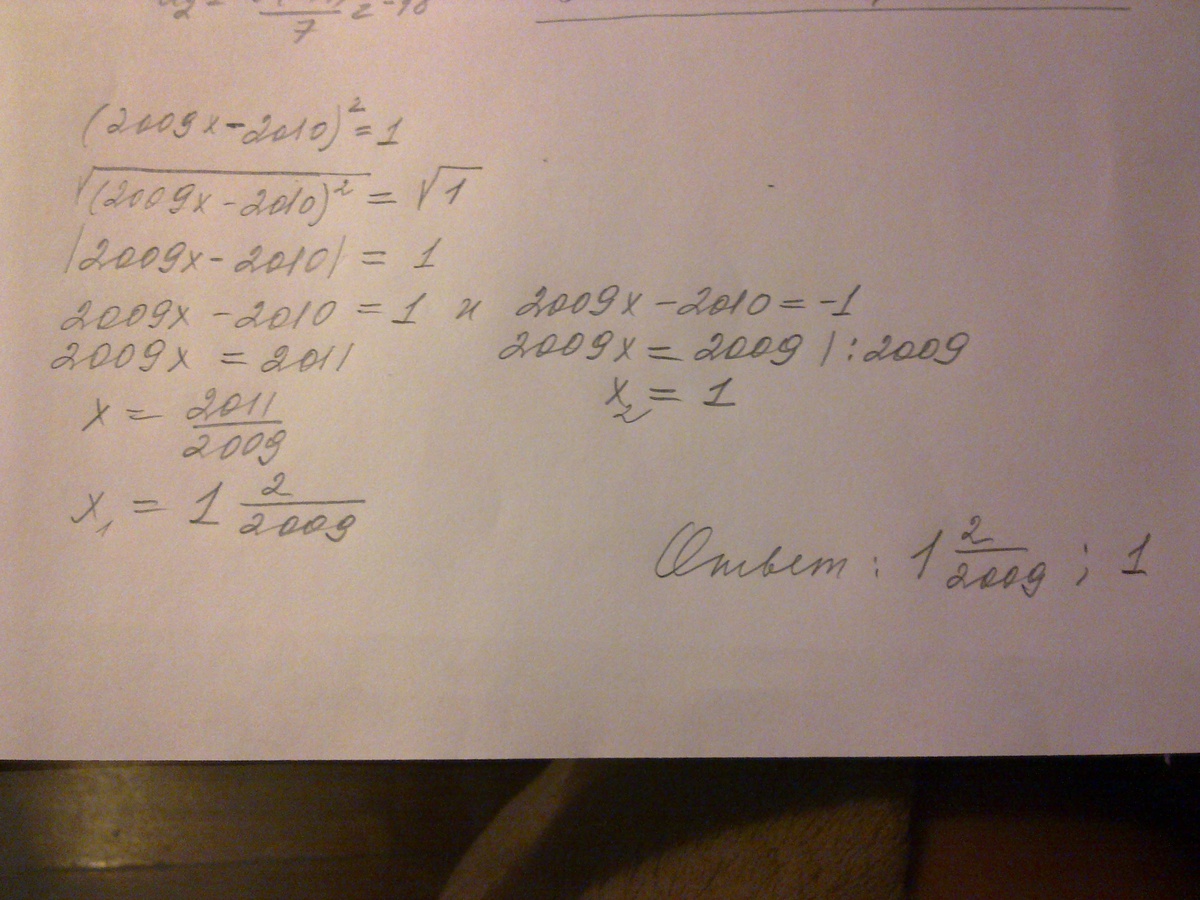 7
(2009x-2010)²=1
√(2009x-2010)² = √1
|2009x-2010| = 1
2009x-2010=1 и 2009x-2010=-1
2009x = 2011
2009x = 2009 | :2009
x = 2011/2009
x₂ = 1
x₁ = 1 2/2009
Ответ: 1 2/2009 ; 1